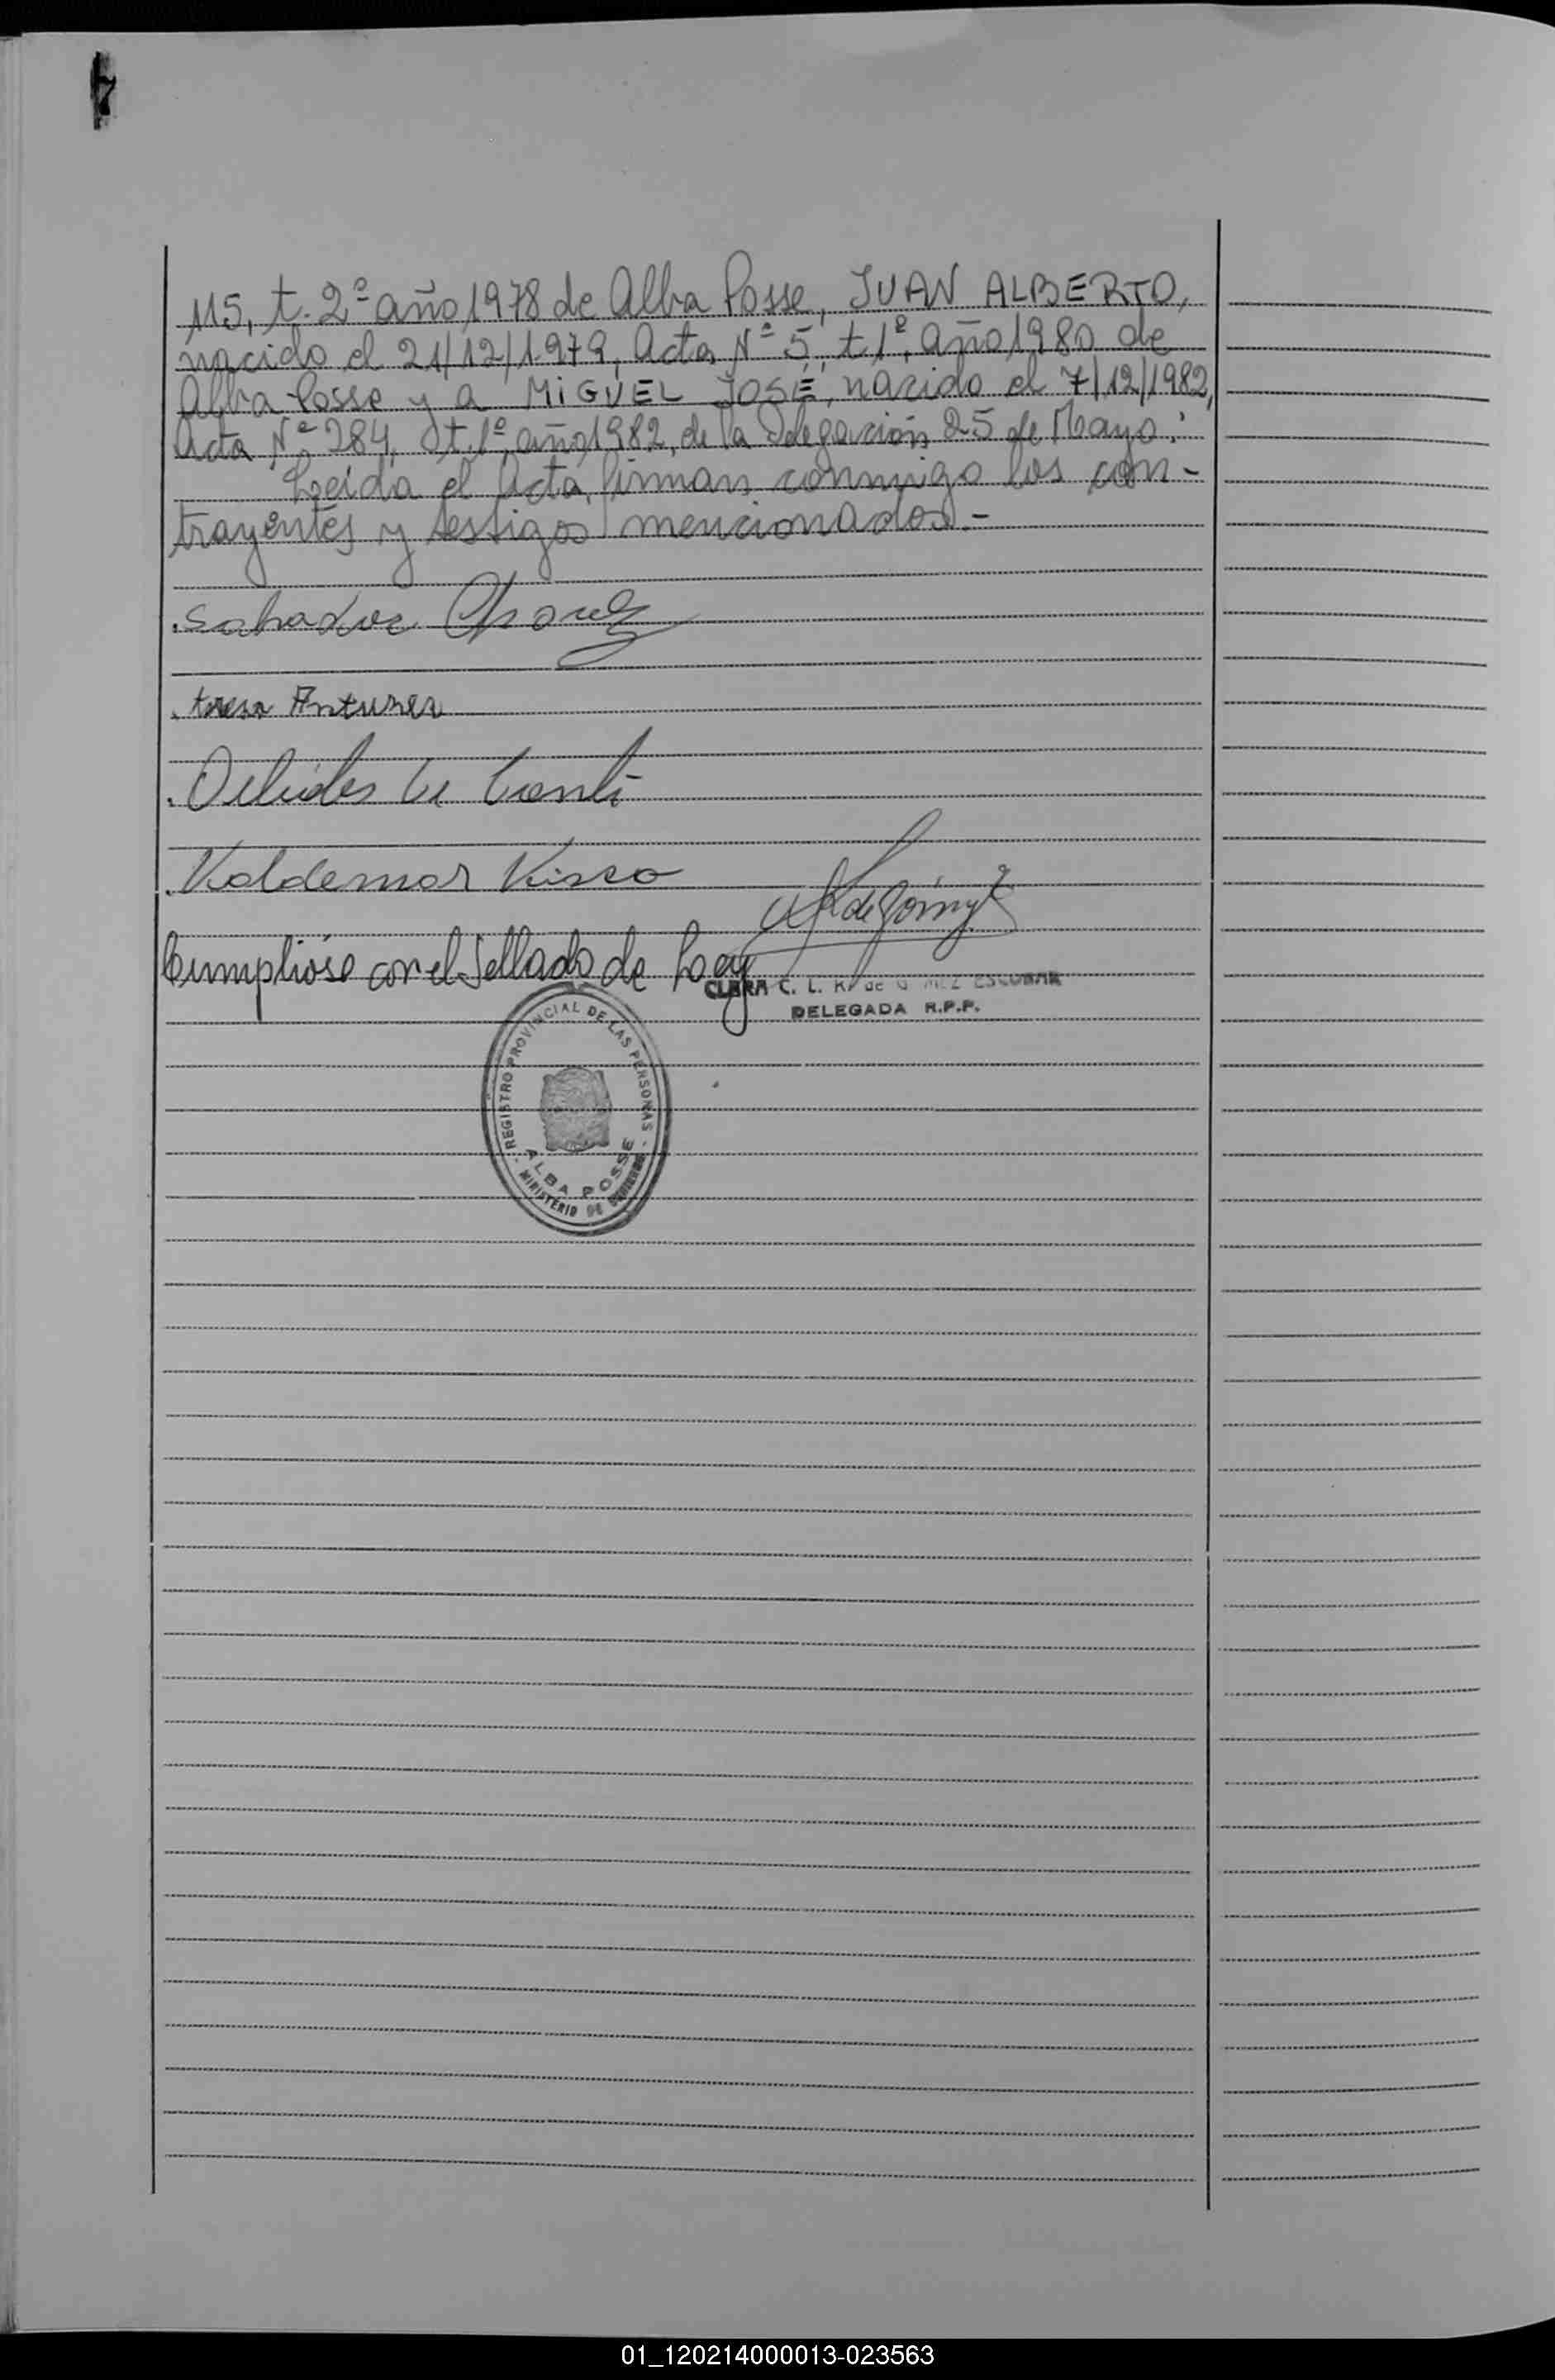 115, t. 2º año 1978 de Alba Posse, JUAN ALBERTO,
nacido el 21/12/1979, Acta Nº 5, t. 1º, año 1980 de
Alba Posse y a MIGUEL JOSÉ, nacido el 7/12/1982,
Acta Nº 284, t. 1º, año 1982, de la Delegación 25 de Mayo.
Leída el Acta, firman conmigo los con-
trayentes y testigos mencionados.-
Valdemar
Cumplióse con el Sellado de Ley
CLARA C. L. K. de G MEZ ESCOBAR
DELEGADA R.P.P.
REGISTRO PROVINCIAL DE LAS PERSONAS
ALBA POSSE
MINISTERIO DE GOBIERNO
01_120214000013-023563